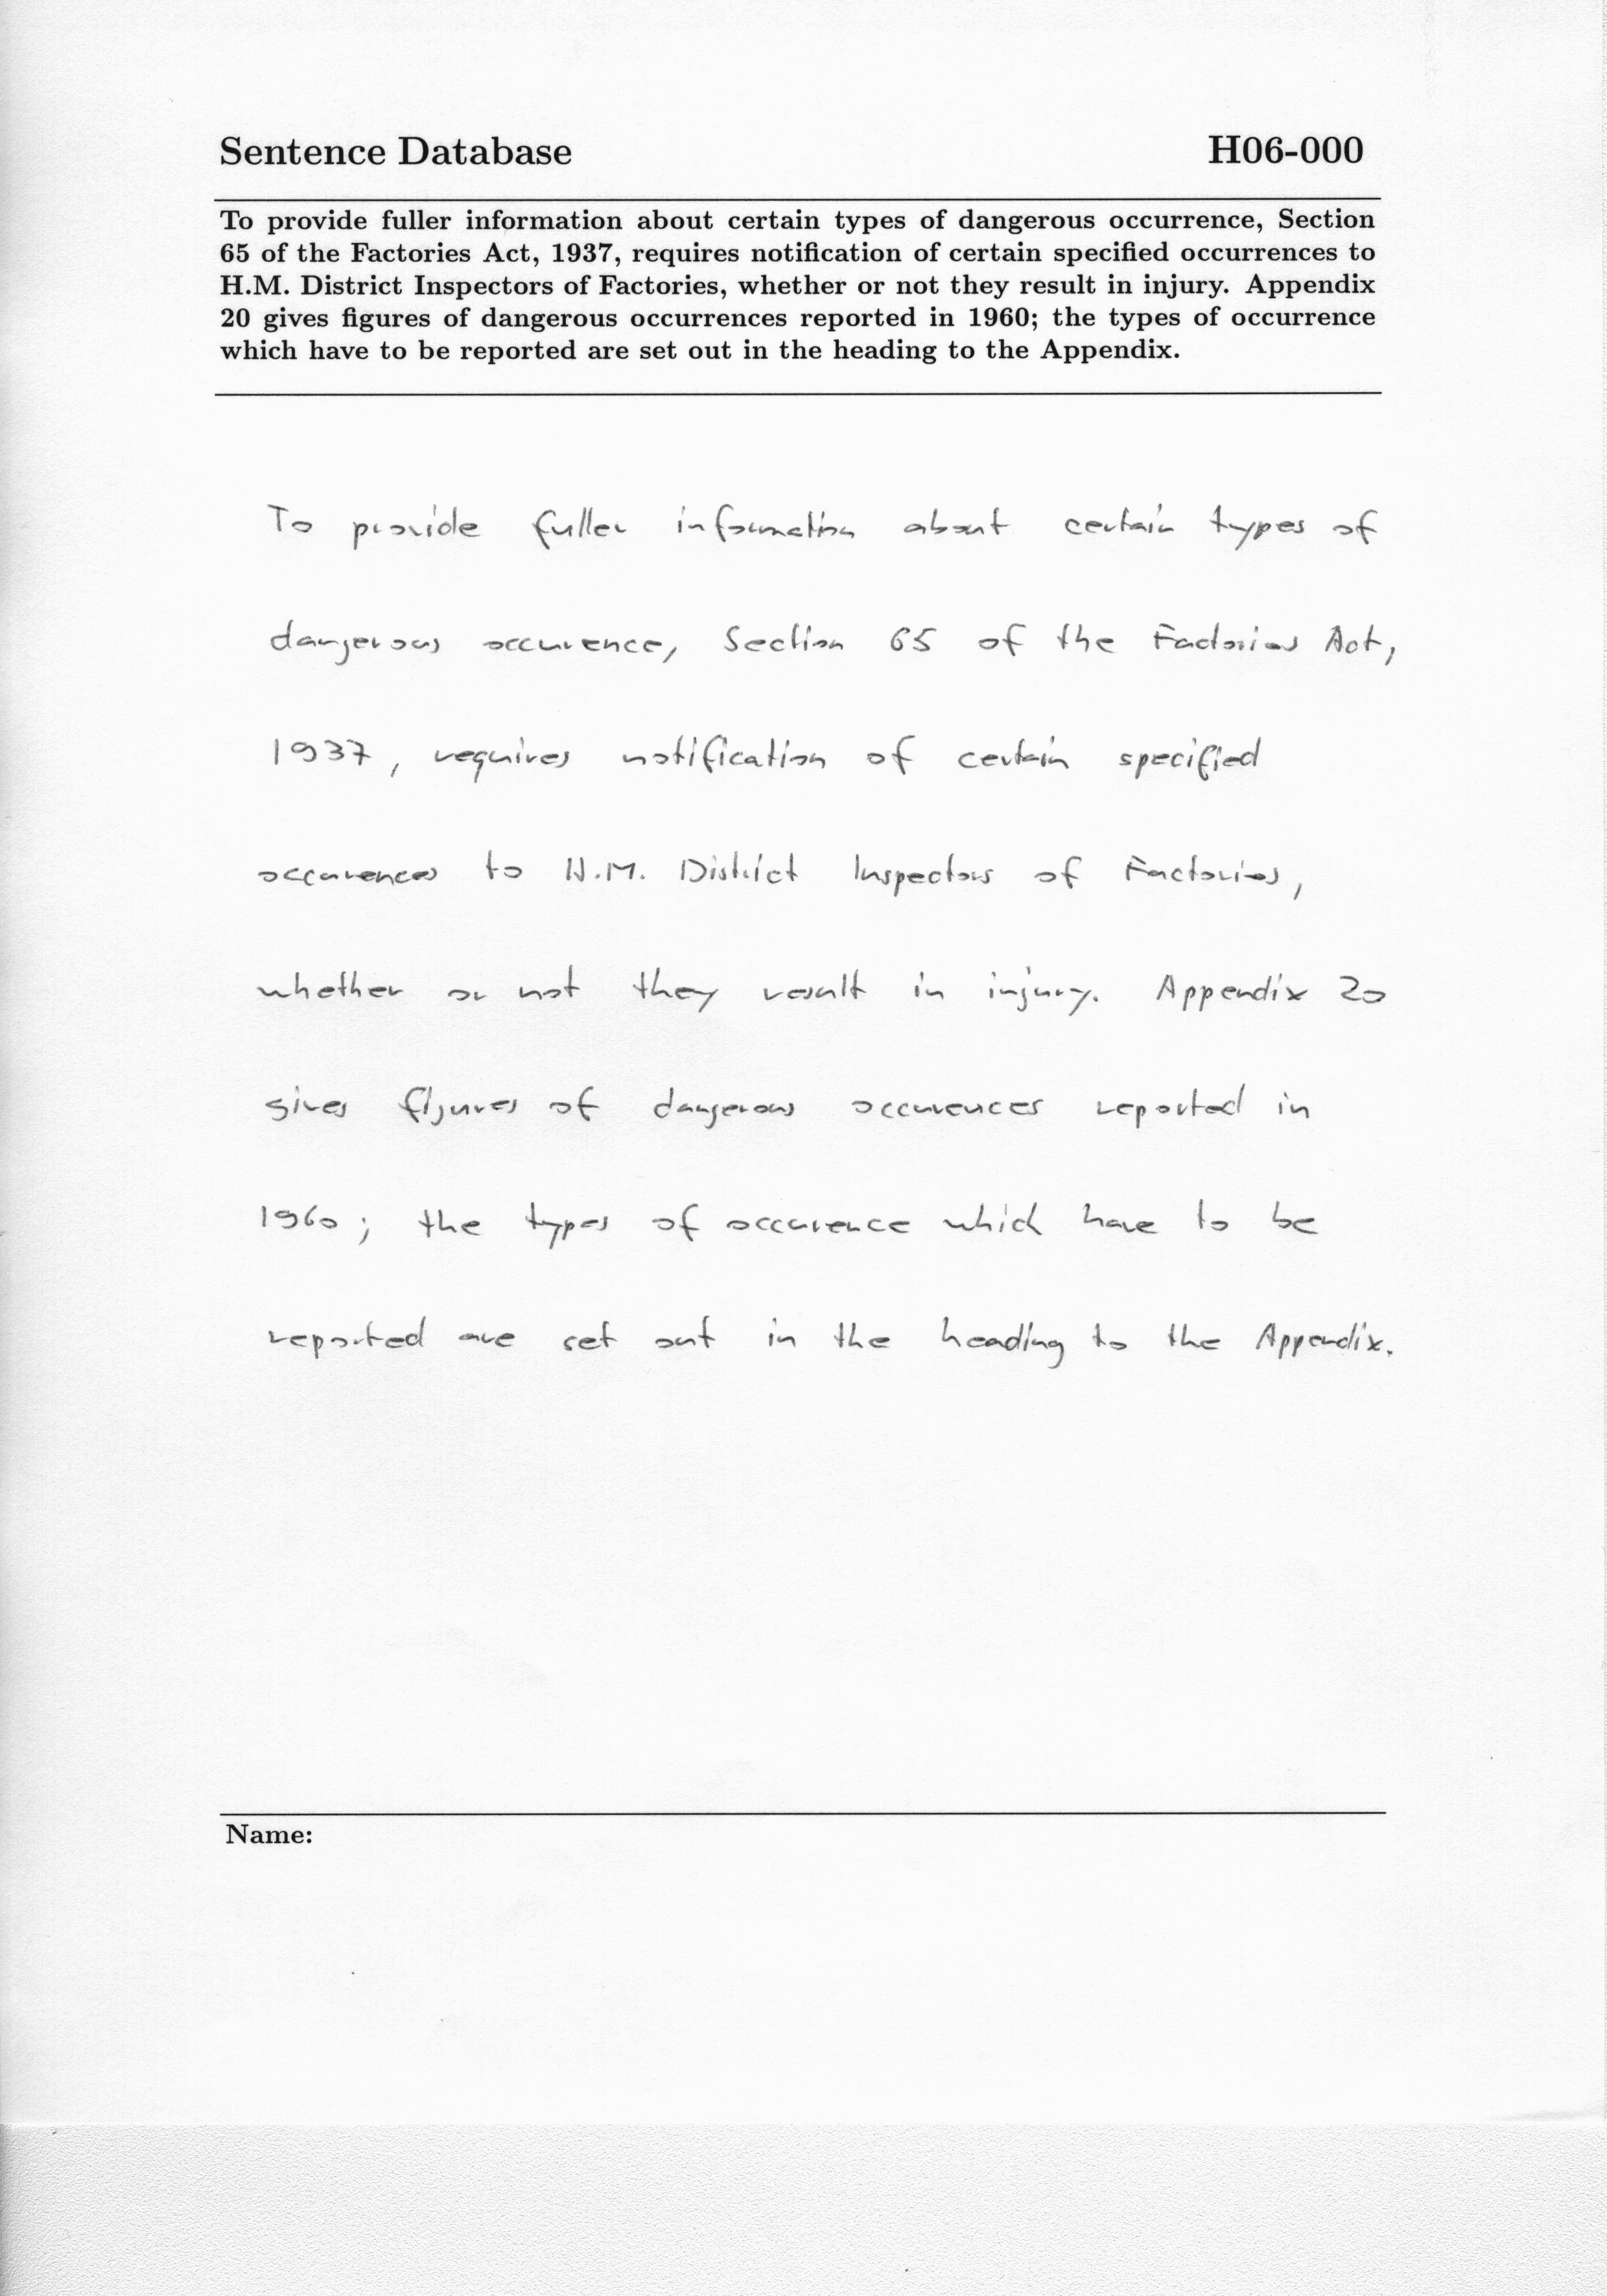 Sentence Database H06-000
To provide fuller information about certain types of dangerous occurrence, Section
65 of the Factories Act, 1937, requires notification of certain specified occurrences to
H.M. District Inspectors of Factories, whether or not they result in injury. Appendix
20 gives figures of dangerous occurrences reported in 1960; the types of occurrence
which have to be reported are set out in the heading to the Appendix.
To provide fuller information about certain types of
dangerous occurence, Section 65 of the Factories Act,
1937, requires notification of certain specified
occurences to H.M. District Inspectors of Factories,
whether or not they result in injury. Appendix 20
gives figures of dangerous occurences reported in
1960; the types of occurence which have to be
reported are set out in the heading to the Appendix.
Name: